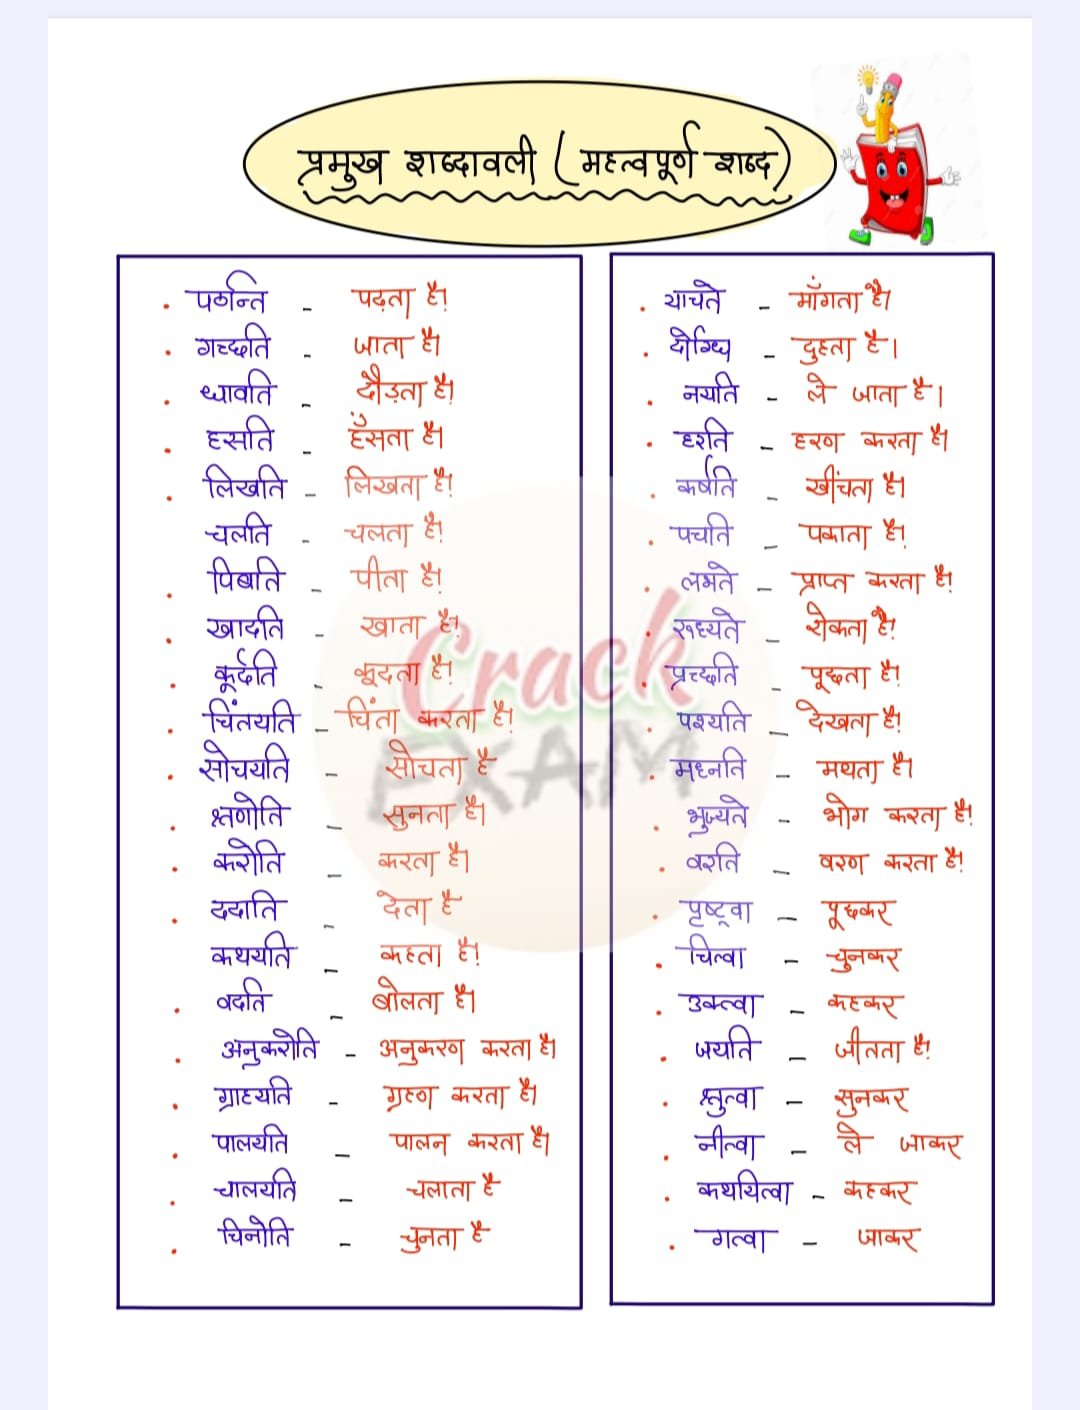 प्रमुख शब्दावली (महत्वपूर्ण शब्द)
. पठन्ति - पढ़ता है।
. गच्छति - जाता है।
. धावति - दौड़ता है।
. हसति - हँसता है।
. लिखति - लिखता है।
चलति - चलता है।
. पिबति - पीता है।
. खादति - खाता है।
. कूर्दति - कूदता है।
. चिंतयति - चिंता करता है।
. सोचयति - सोचता है
. श्रणोति - सुनता है।
. करोति - करता है।
. ददाति - देता है
कथयति - कहता है।
. वदति - बोलता है।
. अनुकरोति - अनुकरण करता है।
. ग्राहयति - ग्रहण करता है।
. पालयति - पालन करता है।
. चालयति - चलाता है
. चिनोति - चुनता है
. याचते - माँगता है।
. दोग्धि - दुहता है।
. नयति - ले जाता है।
. हरति - हरण करता है।
. कर्षति - खींचता है।
. पचति - पकाता है।
. लभते - प्राप्त करता है।
. रूध्यते - रोकता है।
. प्रच्छति - पूछता है।
. पश्यति - देखता है।
. मध्नति - मथता है।
. भुज्यते - भोग करता है।
. वरति - वरण करता है।
. पृष्ट्वा - पूछकर
. चित्वा - चुनकर
. उक्त्वा - कहकर
. जयति - जीतता है।
. श्रुत्वा - सुनकर
. नीत्वा - ले जाकर
. कथयित्वा - कहकर
. गत्वा - जाकर
Crack
EXAM